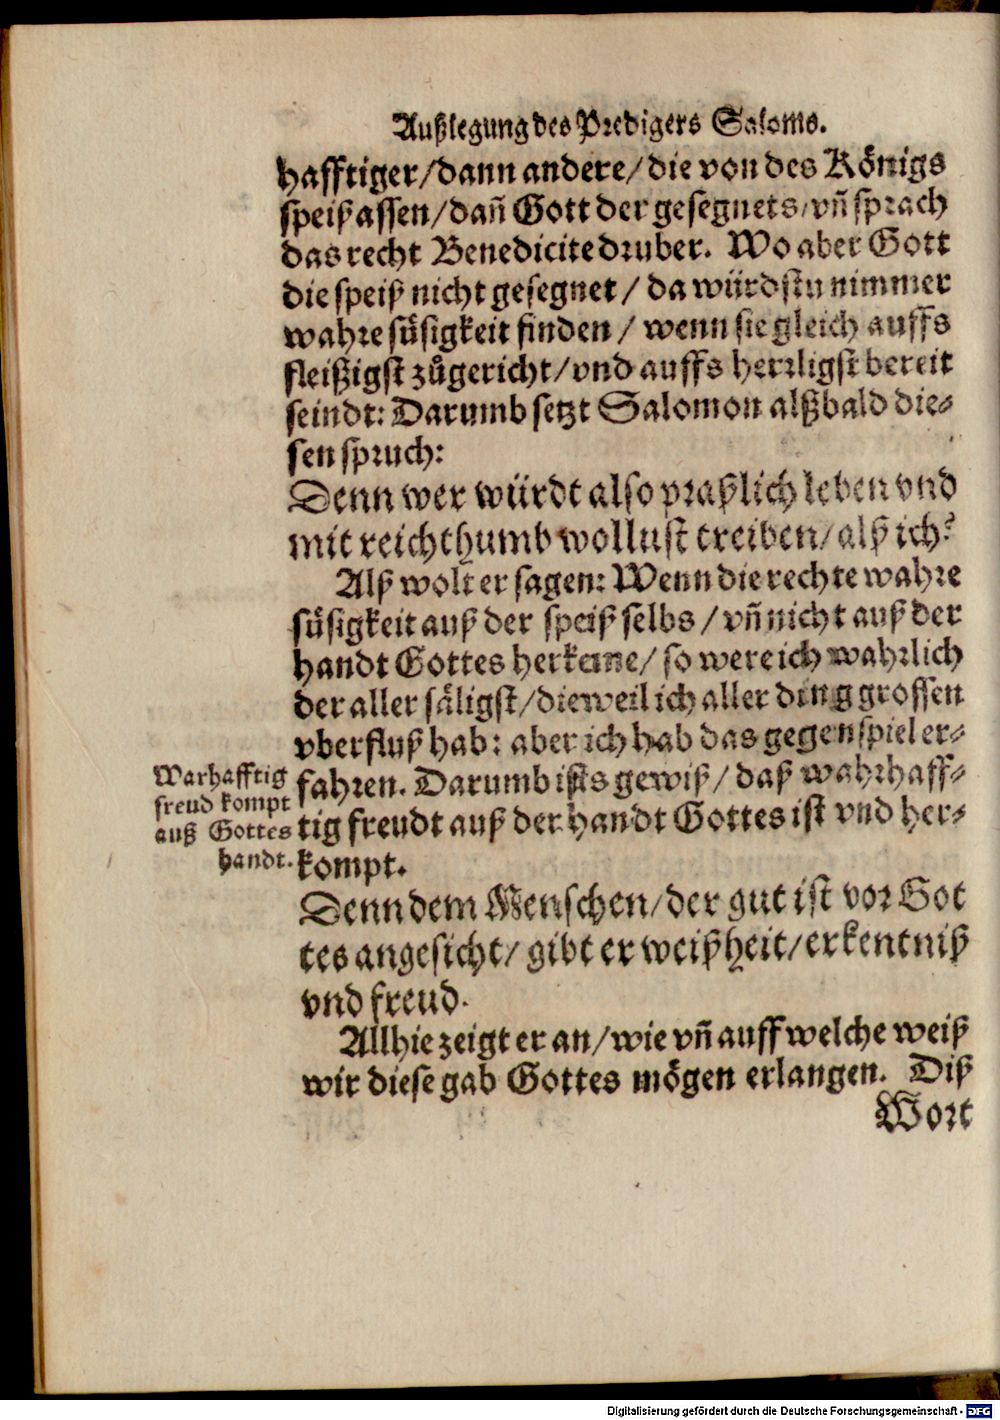 Außlegung des Predigers Saloms.
hafftiger/dann andere/die von des Königs
speiß assen/dañ Gott der gesegnets/vñ sprach
das recht Benedicite druber. Wo aber Gott
die speiß nicht gesegnet/ da würdstu nimmer
wahre süsigkeit finden/ wenn sie gleich auffs
fleißigst zůgericht/vnd auffs herrligst bereit
seindt: Darumb setzt Salomon alßbald die-
sen spruch:
Denn wer würdt also praßlich leben vnd
mit reichthumb wollust treiben/alß ich?
Alß wolt er sagen: Wenn die rechte wahre
süsigkeit auß der speiß selbs/vñ nicht auß der
handt Gottes herkeme/ so were ich wahrlich
der aller säligst/dieweil ich aller ding grossen
vberfluß hab: aber ich hab das gegenspiel er-
fahren. Darumb ists gewiß/ daß wahrhaff-
tig freudt auß der handt Gottes ist vnd her-
kompt.
Warhafftig
freud kompt
auß Gottes
handt.
Denn dem Menschen/der gut ist vor Got
tes angesicht/gibt er weißheit/erkentniß
vnd freud.
Allhie zeigt er an/wie vñ auff welche weiß
wir diese gab Gottes mögen erlangen. Diß
Wort
Digitalisierung gefördert durch die Deutsche Forschungsgemeinschaft - DFG